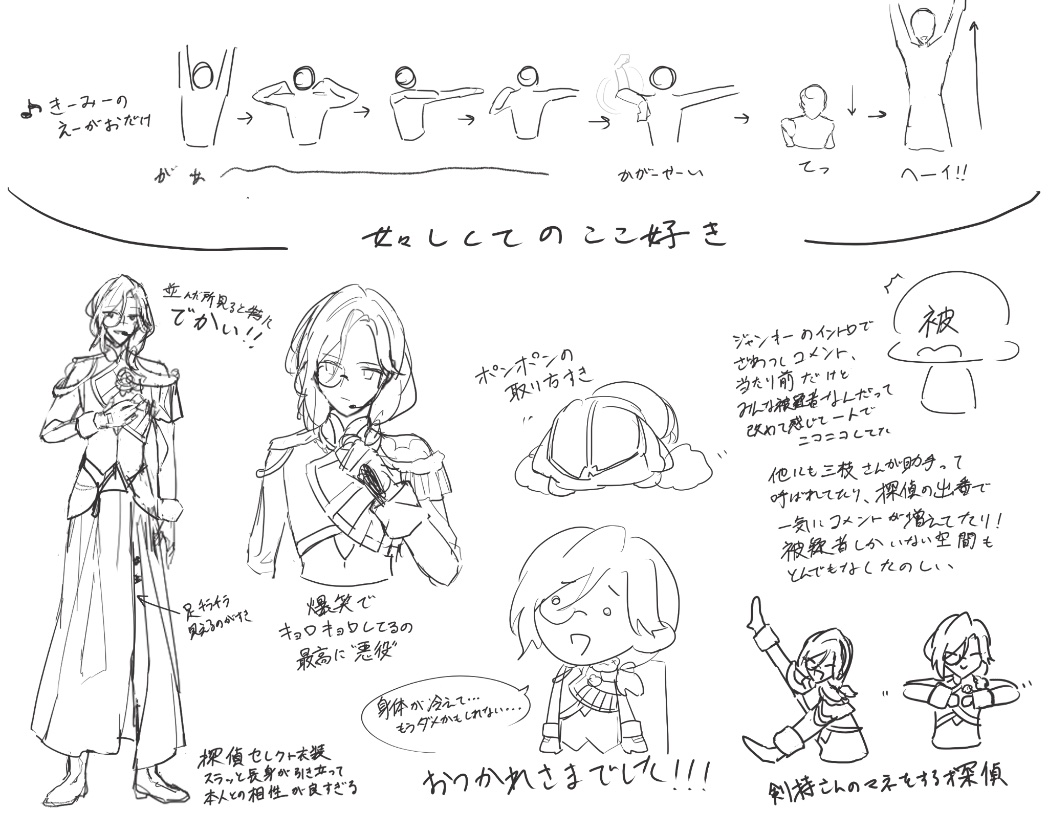 ♪きーみーの
えーがおだけ
があ
かがーやーい
てっ
ヘーイ!!
如々しくてのここ好き
並んだ所見ると特に
でかい!!
足チラチラ
見えるのがすき
探偵セレクト衣装
スラッと長身が引き立って
本人との相性が良すぎる
爆笑で
キョロキョロしてるの
最高に"悪役"
ポンポンの
取り方すき
身体が冷えて…
もうダメかもしれない…
おつかれさまでした!!!
被
ジャンキーのイントロで
ざわつくコメント、
当たり前だけど
みんな被疑者なんだって
改めて感じてートで
ニコニコしてた
他にも三枝さんが助手って
呼ばれてたり、探偵の出番で
一気にコメントが増えてたり!
被疑者しかいない空間も
とんでもなくたのしい
剣持さんのマネをする探偵